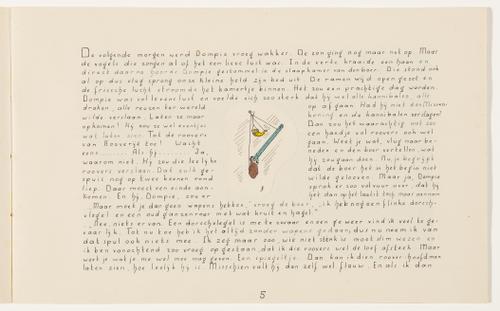 De volgende morgen werd Dompie vroeg wakker. De zon ging nog maar net op. Maar
de vogels die zongen al of het een lieve lust was. In de verte kraaide een haan en
direct daarna hoorde Dompie gestommel in de slaapkamer van den boer. Die stond ook
al op dus vlug sprong onze kleine held zijn bed uit. De ramen wijd open gezet en
de frissche lucht stroomde het kamertje binnen. Het zou een prachtige dag worden.
Dompie was vol levenslust en voelde zich zoo sterk dat hij wel alle kannibalen, alle
draken, alle reuzen ter wereld op af gaan. Had hij niet den
wilde verslaan. Laten ze maar koning en de kannibalen verslagen!
opkomen! Hij zou ze wel eventjes Dan zou het waarachtig ook zoo
wat laten zien. Tot de roovers een handje vol roovers ook wel
van Rooverije toe! Wacht gaan. Weet je wat, vlug naar be-
eens...... Als hij...... Ja, neden en den boer vertellen, wat
waarom niet. Hij zou die leelijke hij zou gaan doen. Nu je begrijpt
roovers verslaan. Dat zulk ge- dat de boer het in het begin niet
spuis nog op twee beenen rond wilde gelooven. Maar ja, Dompie
liep. Daar moest een einde aan sprak er zoo vol vuur over, dat hij
komen. En hij, Dompie, zou er het dan op het laatst toch maar aannam.
"Maar moet je dan geen wapens hebben," vroeg de boer, "ik heb nog een flinke dorsch-
vlegel en een oud ganzenroer met wat kruit en hagel."
"Nee, niets er van. Een dorschvlegel is me te zwaar en een geweer vind ik veel te ge-
vaarlijk. Tot nu toe heb ik het altijd zonder wapens gedaan, dus nu neem ik van
dat spul ook niets mee. Ik zeg maar zoo, wie niet sterk is moet slim wezen en
ik ben vanochtend zoo vroeg op gestaan, dat ik die roovers wel de loef afsteek. Maar
weet je wat je me wel mee mag geven. Een spiegeltje. Dan kan ik dien rooverhoofdman
laten zien, hoe leelijk hij is. Misschien valt hij dan zelf wel flauw. En als ik dan
5